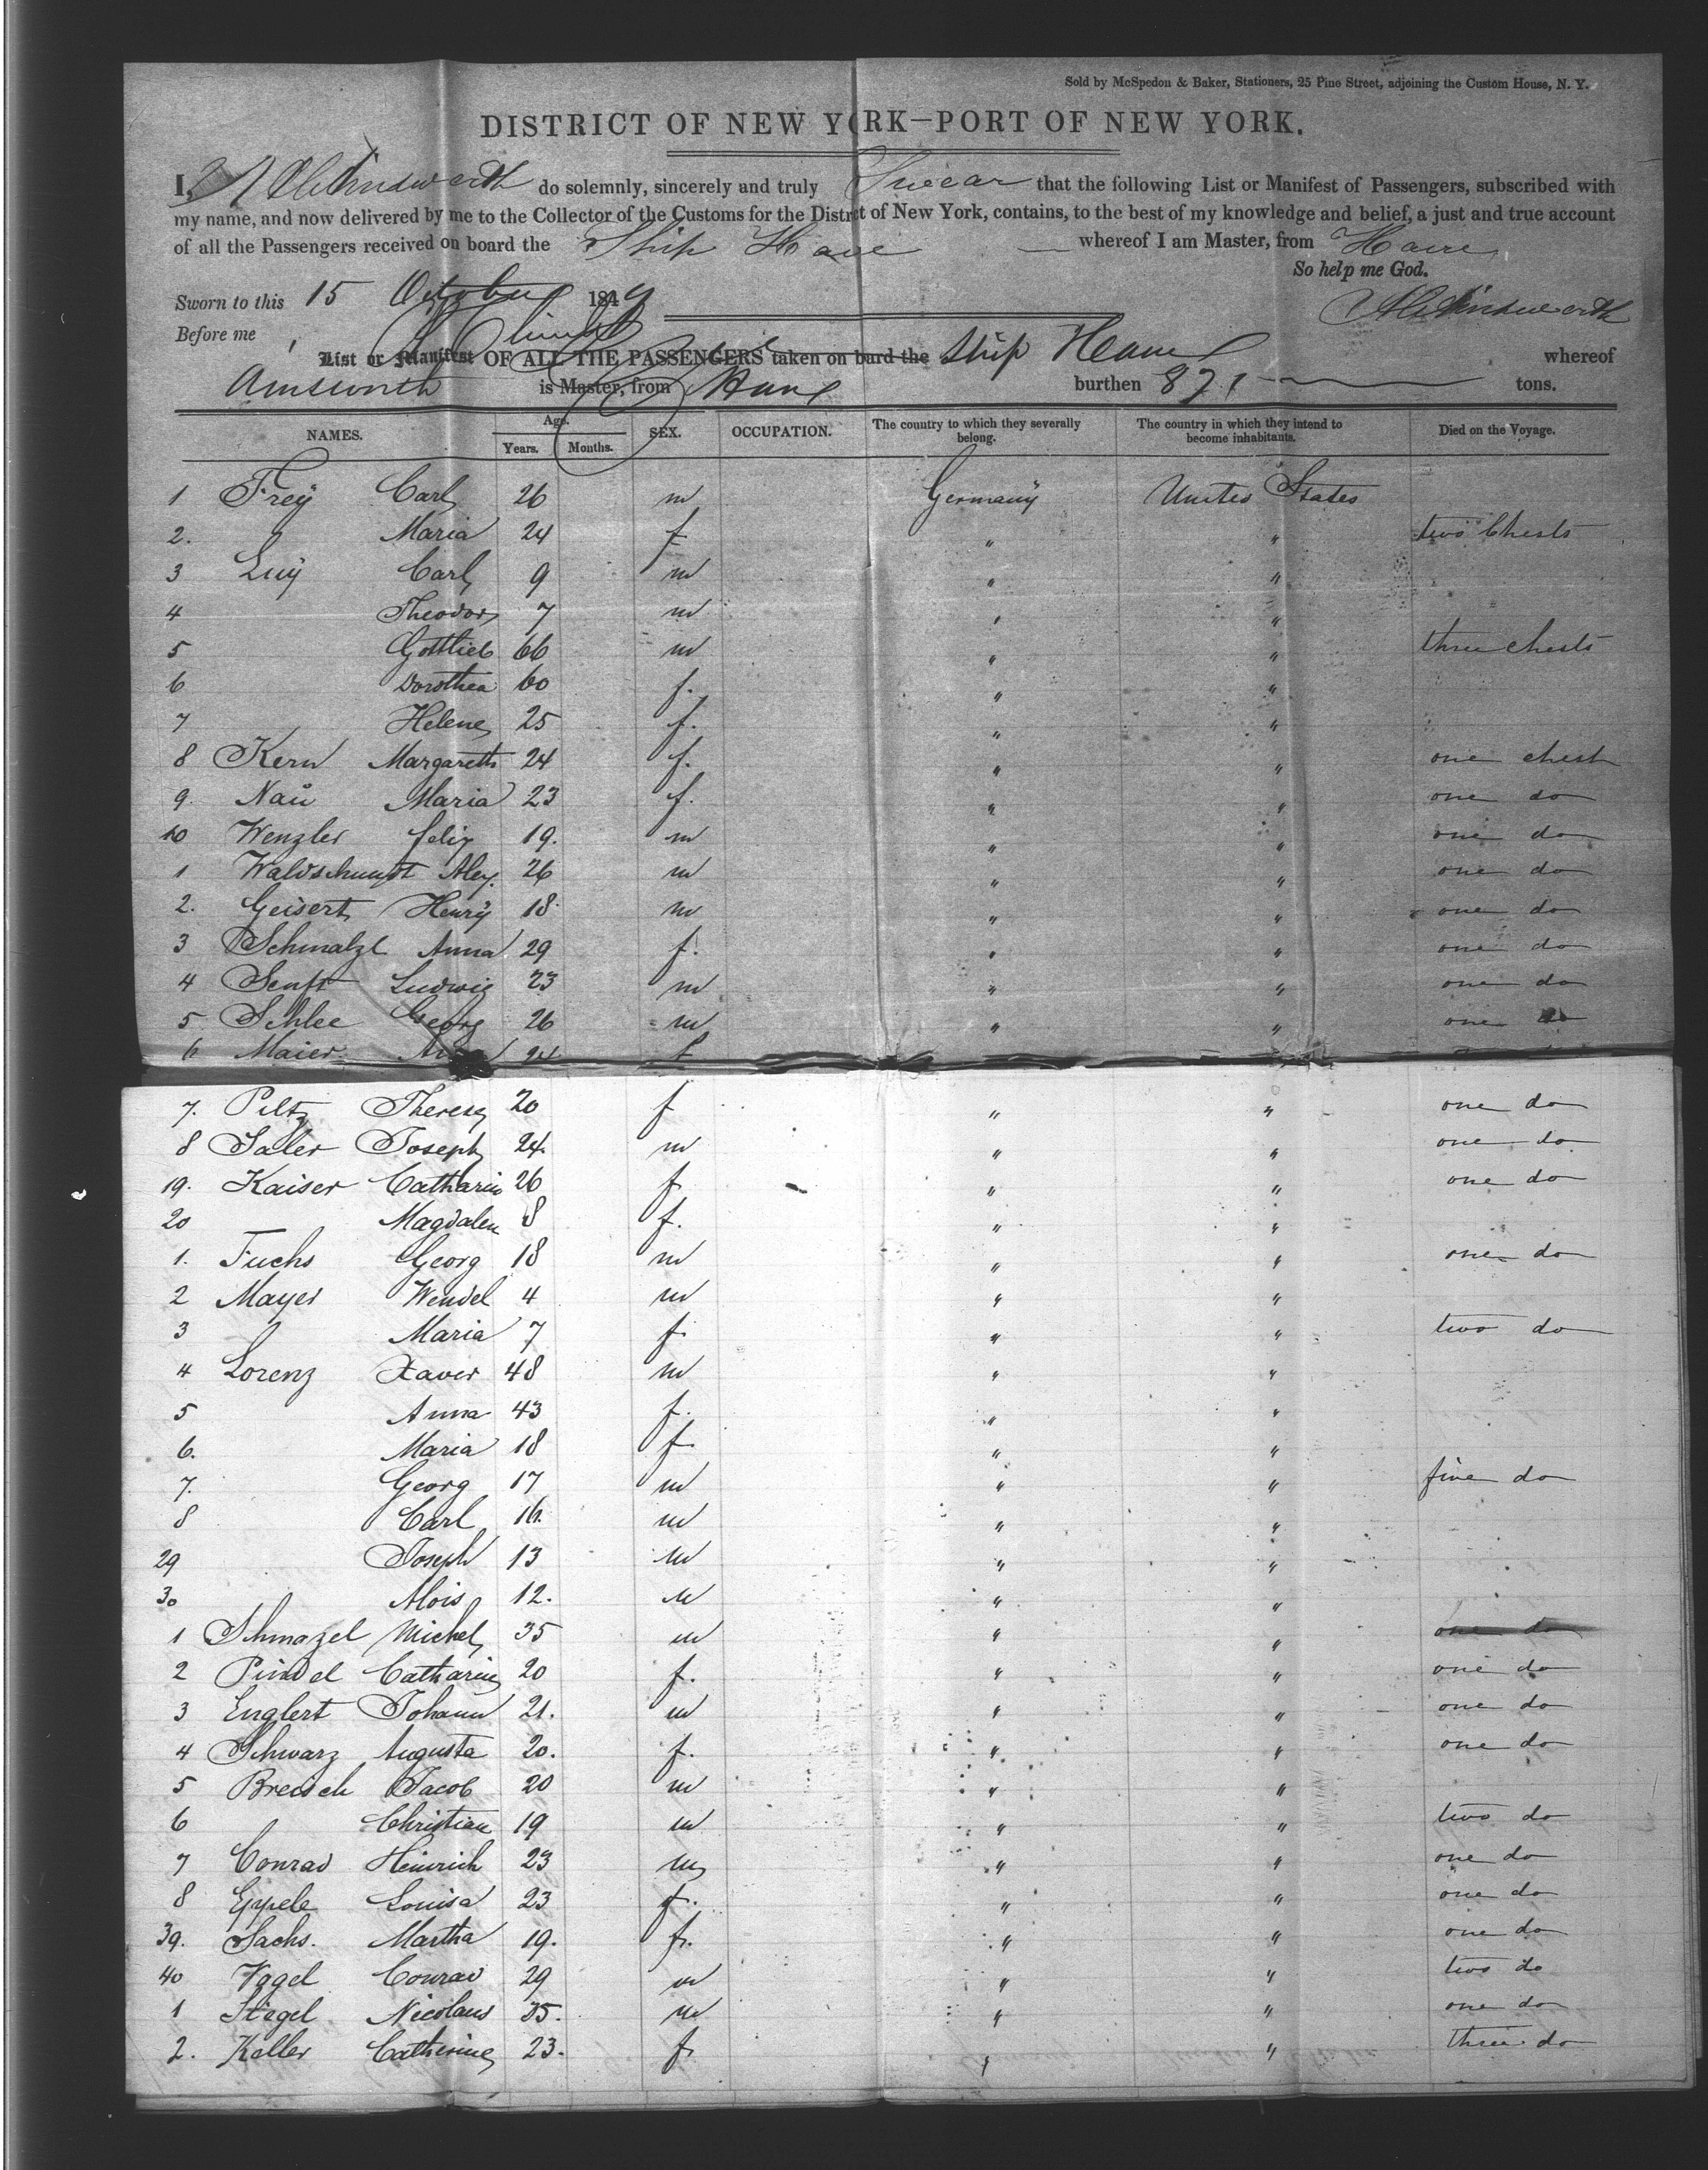 Sold by McSpedon & Baker, Stationers, 25 Pine Street, adjoining the Custom House, N. Y.
DISTRICT OF NEW YORK—PORT OF NEW YORK.
I, do solemnly, sincerely and truly Swear that the following List or Manifest of Passengers, subscribed with
my name, and now delivered by me to the Collector of the Customs for the District of New York, contains, to the best of my knowledge and belief, a just and true account
of all the Passengers received on board the Ship Havre whereof I am Master, from Havre
So help me God.
Sworn to this 15 October 1849
Before me
List or Manifest OF ALL THE PASSENGERS taken on bard the Ship Havre whereof
Ainsworth is Master, from Havre burthen 871 tons.
NAMES. Age. Years. Months. SEX. OCCUPATION. The country to which they severally belong. The country in which they intend to become inhabitants. Died on the Voyage.
1 Frey Carl 26 m Germany United States
2. Maria 24 f " " two Chests
3 Luy Carl 9 m " "
4 Theodor 7 m " "
5 Gottlieb 66 m " " three chests
6 Dorothea 60 f. " "
7 Helene 25 f. " "
8 Kern Margareth 24 f. " " one chest
9. Nau Maria 23 f. " " one do
10 Wenzler Felix 19. m " " one do
1 Waldschmidt Alex. 26 m " " one do
2. Geisert Henry 18 m " " one do
3 Schmalzl Anna 29 f. " " one do
4 Senft Ludwig 23 m " " one do
5 Schlee Georg 26 m " " one do
6 Maier 24 f
7. Peltz Therese 20 f " " one do
8 Saler Joseph 24. m " " one do
19. Kaiser Catharin 26 f " " one do
20 Magdalen 8 f. " "
1. Fuchs Georg 18 m " " one do
2 Mayer Wendel 4 m " "
3 Maria 7 f. " " two do
4 Lorenz Xaver 48 m " "
5 Anna 43 f. " "
6. Maria 18 f. " "
7. Georg 17 m " " five do
8 Carl 16. m " "
29 Joseph 13 m " "
30 Alois 12. m " "
1 Schmazel Michel 35 m " " one do
2 Catharine 20 f. " " one do
3 Englert Johann 21. m " " one do
4 Schwarz Augusta 20. f. " " one do
5 Jacob 20 m " "
6 Christian 19 m " " two do
7 Conrad Heinrich 23 m " " one do
8 Eppele Louisa 23 f. " " one do
39. Sachs. Martha 19. f. " " one do
40 Vogel Conrad 29 m " " two do
1 Stegel Nicolaus 35. m " " one do
2. Keller Catherine 23. f " " three do